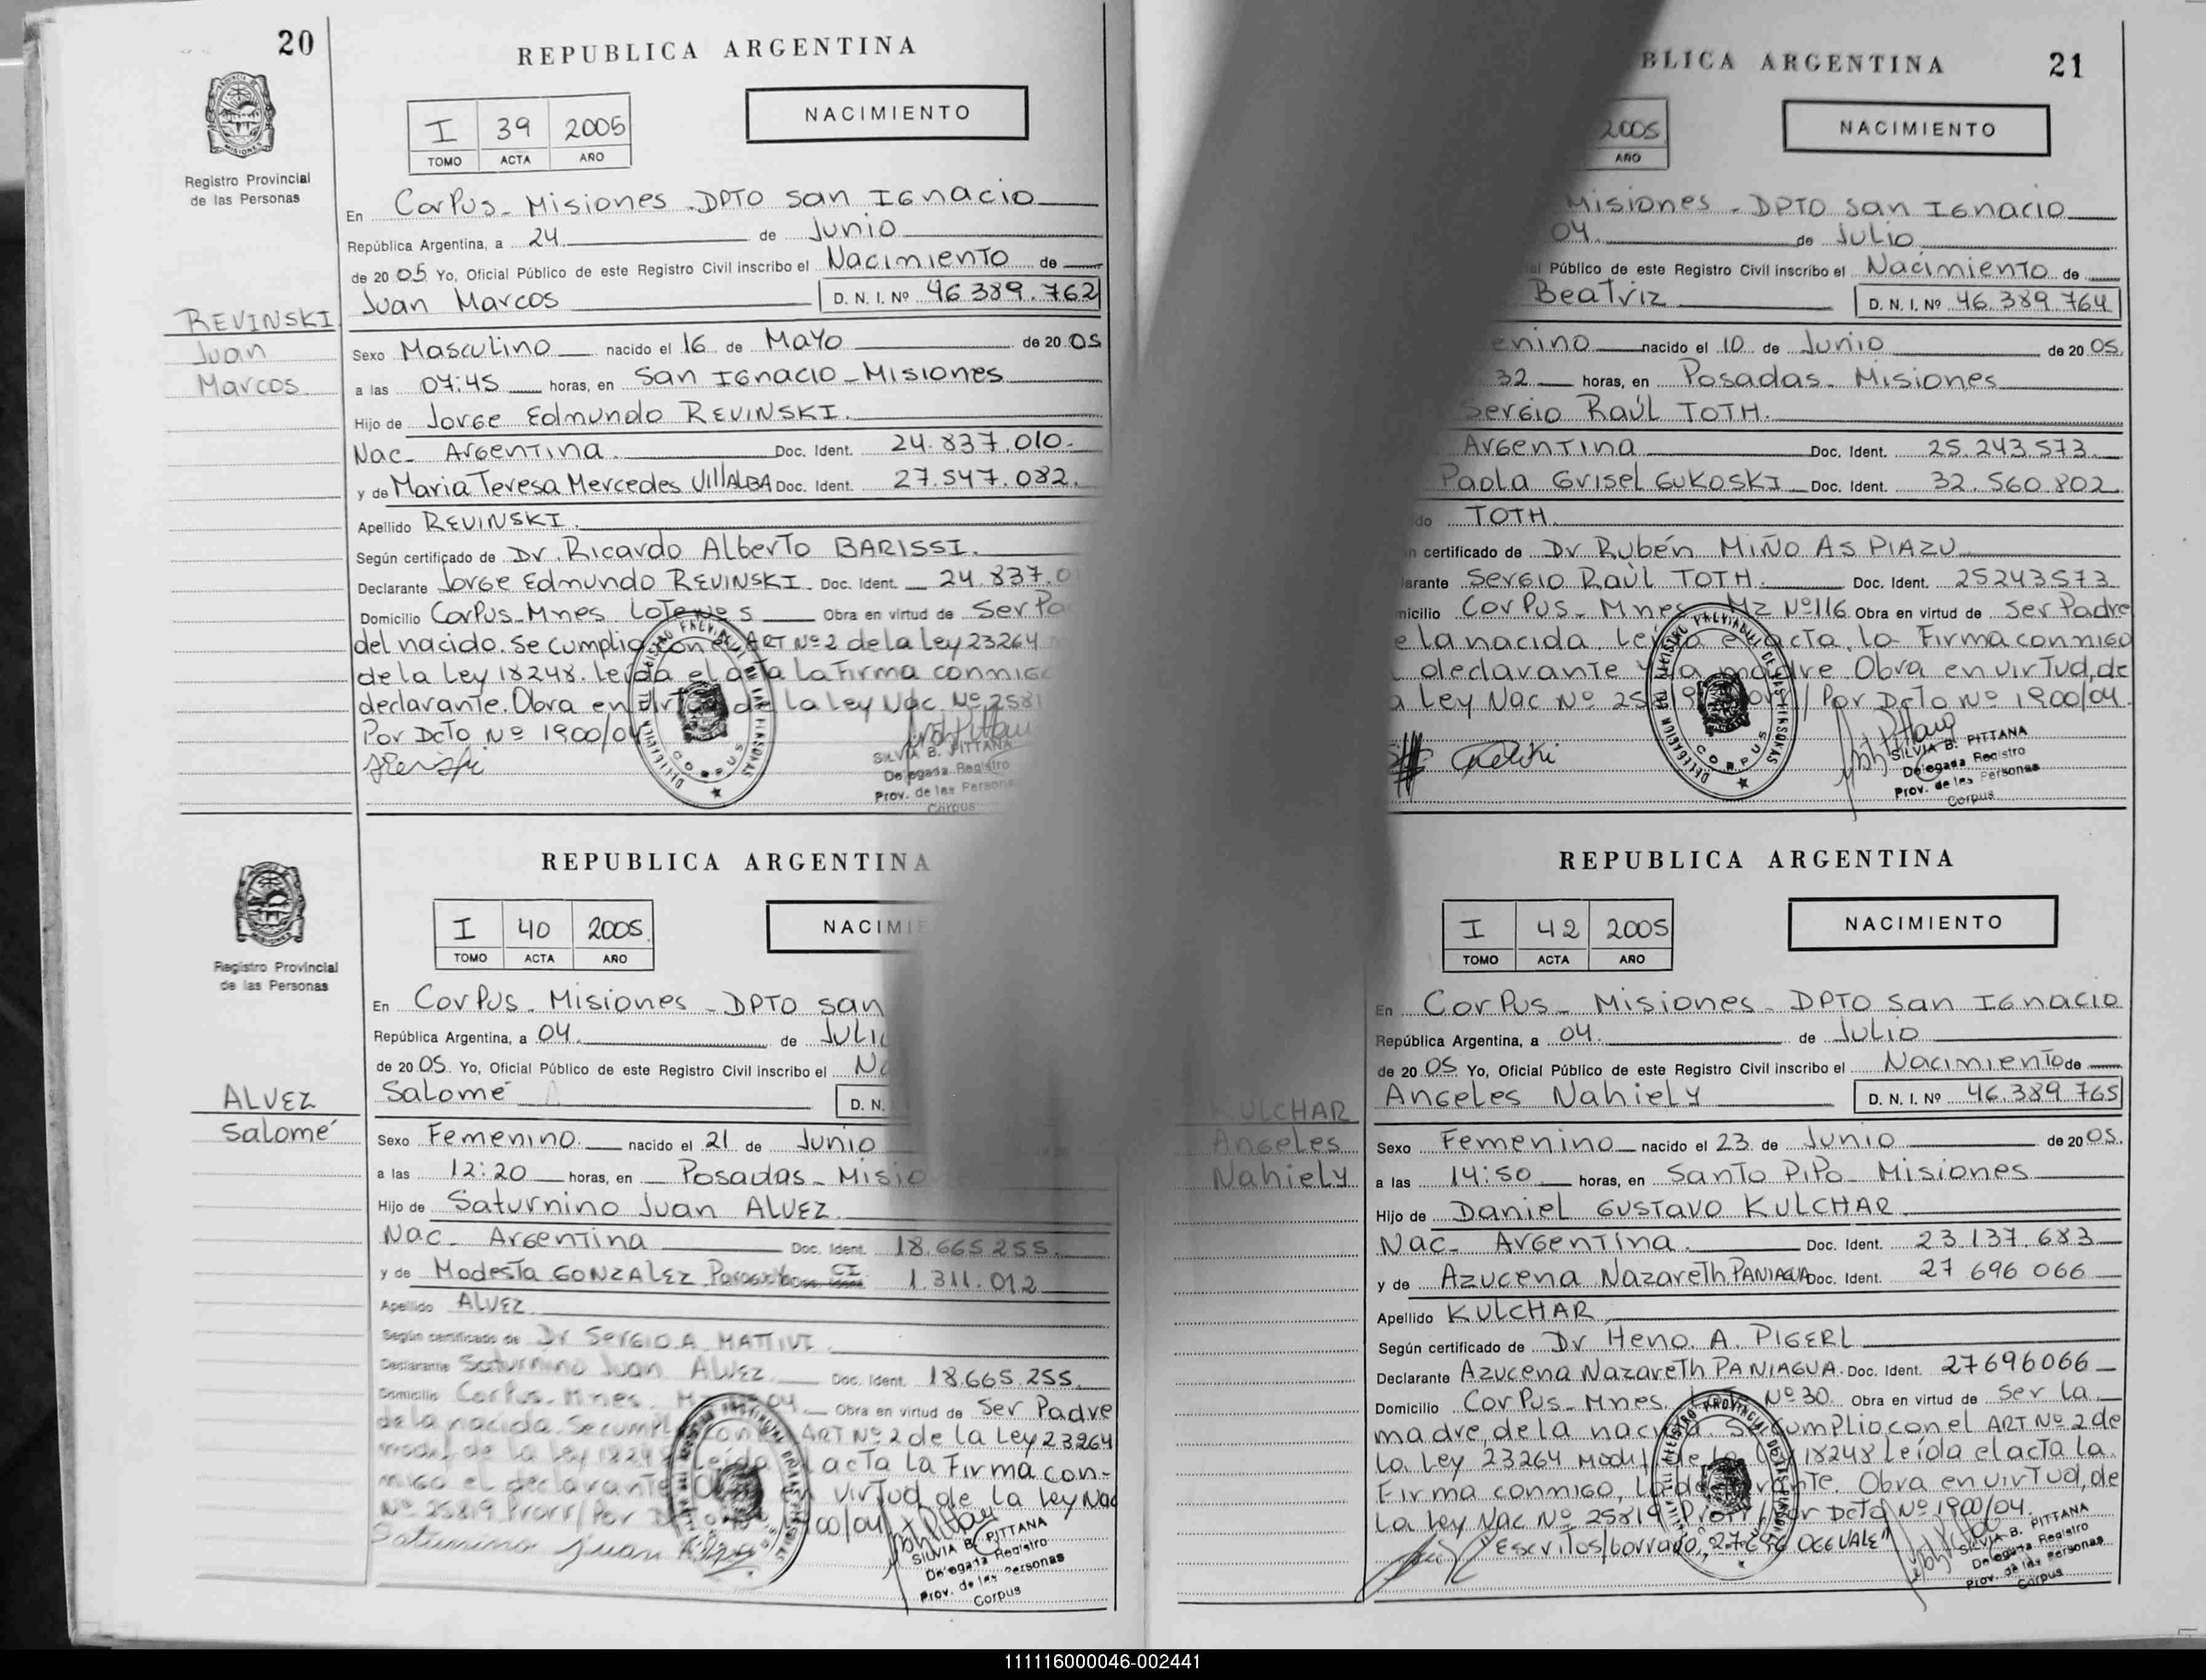 20
REPUBLICA ARGENTINA
I 39 2005
TOMO ACTA AÑO
NACIMIENTO
Registro Provincial
de las Personas
En Corpus - Misiones - DPTO San Ignacio
República Argentina, a 24 de Junio
de 2005 Yo, Oficial Público de este Registro Civil inscribo el Nacimiento de
Juan Marcos D. N. I. Nº 46.389.762
REVINSKI
Juan
Marcos
Sexo Masculino nacido el 16 de Mayo de 2005
a las 07:45 horas, en San Ignacio - Misiones
Hijo de Jorge Edmundo REVINSKI.
Nac- Argentina Doc. Ident. 24.837.010.
y de Maria Teresa Mercedes VIllALBA Doc. Ident. 27.547.082.
Apellido REVINSKI.
Según certificado de Dr. Ricardo Alberto BARISSI.
Declarante Jorge Edmundo REVINSKI. Doc. Ident. 24.837.0
Domicilio Corpus- Mnes Lote Nº 5 Obra en virtud de Ser Pa
del nacido. Se cumplio con el ART Nº 2 de la Ley 23264
de la Ley 18248. Leída el acta la Firma conmigo
declarante. Obra en virtud de la Ley Nac. Nº 2581
Por Dcto Nº 1900/04
SILVIA B. PITTANA
Delegada Registro
Prov. de las Persona
Corpus
REPUBLICA ARGENTINA
I 40 2005
TOMO ACTA AÑO
NACIMIE
Registro Provincial
de las Personas
En Corpus - Misiones - DPTO San
República Argentina, a 04. de JULI
de 2005. Yo, Oficial Público de este Registro Civil inscribo el Na
Salomé D. N.
ALVEZ
Salomé
Sexo Femenino. nacido el 21 de Junio
a las 12:20 horas, en Posadas - Misio
Hijo de Saturnino Juan ALVEZ.
Nac- Argentina Doc. Ident. 18.665.255.
y de Modesta GONZALEZ CI 1.311.012
Apellido ALVEZ.
Según certificado de Dr Sergio A. MATTIVI.
Declarante Saturnino Juan ALVEZ. Doc. Ident. 18.665.255.
Domicilio Corpus - Mnes. 04. Obra en virtud de Ser Padre
de la nacida. Se cumplio con el ART Nº 2 de la Ley 23264
modif de la Ley 18248 Leída el acta la Firma con-
migo el declarante. Obra en virtud de la Ley Nac
Nº 25819 Prorr/ Por Dcto Nº 1900/04
Saturnino Juan Alvez
SILVIA B. PITTANA
Delegada Registro
Prov. de las Personas
Corpus
BLICA ARGENTINA
21
2005
AÑO
NACIMIENTO
Misiones - DPTO San Ignacio
04. de JULIO
Público de este Registro Civil inscribo el Nacimiento de
Beatriz D. N. I. Nº 46.389.764
enino nacido el 10 de Junio de 2005.
32 horas, en Posadas - Misiones
Sergio Raúl TOTH.
Argentina Doc. Ident. 25.243.573.
Paola Grisel GUKOSKI Doc. Ident. 32.560.802.
do TOTH.
certificado de Dr Rubén MIÑO ASPIAZU
arante Sergio Raúl TOTH. Doc. Ident. 25243573
micilio Corpus - Mnes Mz Nº 116 Obra en virtud de Ser Padre
e la nacida. Leída el acta, la Firma conmigo
declarante y la madre. Obra en virtud, de
a Ley Nac Nº 25819 Prorr/ Por Dcto Nº 1900/04.
SILVIA B. PITTANA
Delegada Registro
Prov. de las Personas
Corpus
REPUBLICA ARGENTINA
I 42 2005
TOMO ACTA AÑO
NACIMIENTO
En Corpus - Misiones - DPTO San Ignacio
República Argentina, a 04. de Julio
de 2005 Yo, Oficial Público de este Registro Civil inscribo el Nacimiento de
Angeles Nahiely D. N. I. Nº 46.389.765
KULCHAR
Angeles
Nahiely
Sexo Femenino nacido el 23 de Junio de 2005.
a las 14:50 horas, en Santo Pipó - Misiones
Hijo de Daniel Gustavo KULCHAR.
Nac- Argentina. Doc. Ident. 23.137.683
y de Azucena Nazareth PANIAGUA Doc. Ident. 27 696 066
Apellido KULCHAR
Según certificado de Dr Heno. A. PIGERL
Declarante Azucena Nazareth PANIAGUA. Doc. Ident. 27696066
Domicilio Corpus - Mnes. Nº 30. Obra en virtud de Ser la
madre, de la nacida. Se cumplio con el ART Nº 2 de
La Ley 23264 Modif de la Ley 18248 Leída el acta la
Firma conmigo, la declarante. Obra en virtud, de
La Ley Nac Nº 25819 Prorr/ Por Dcto Nº 1900/04.
"Escritos/borrado, 27696066 VALE"
SILVIA B. PITTANA
Delegada Registro
Prov. de las Personas
Corpus
111116000046-002441